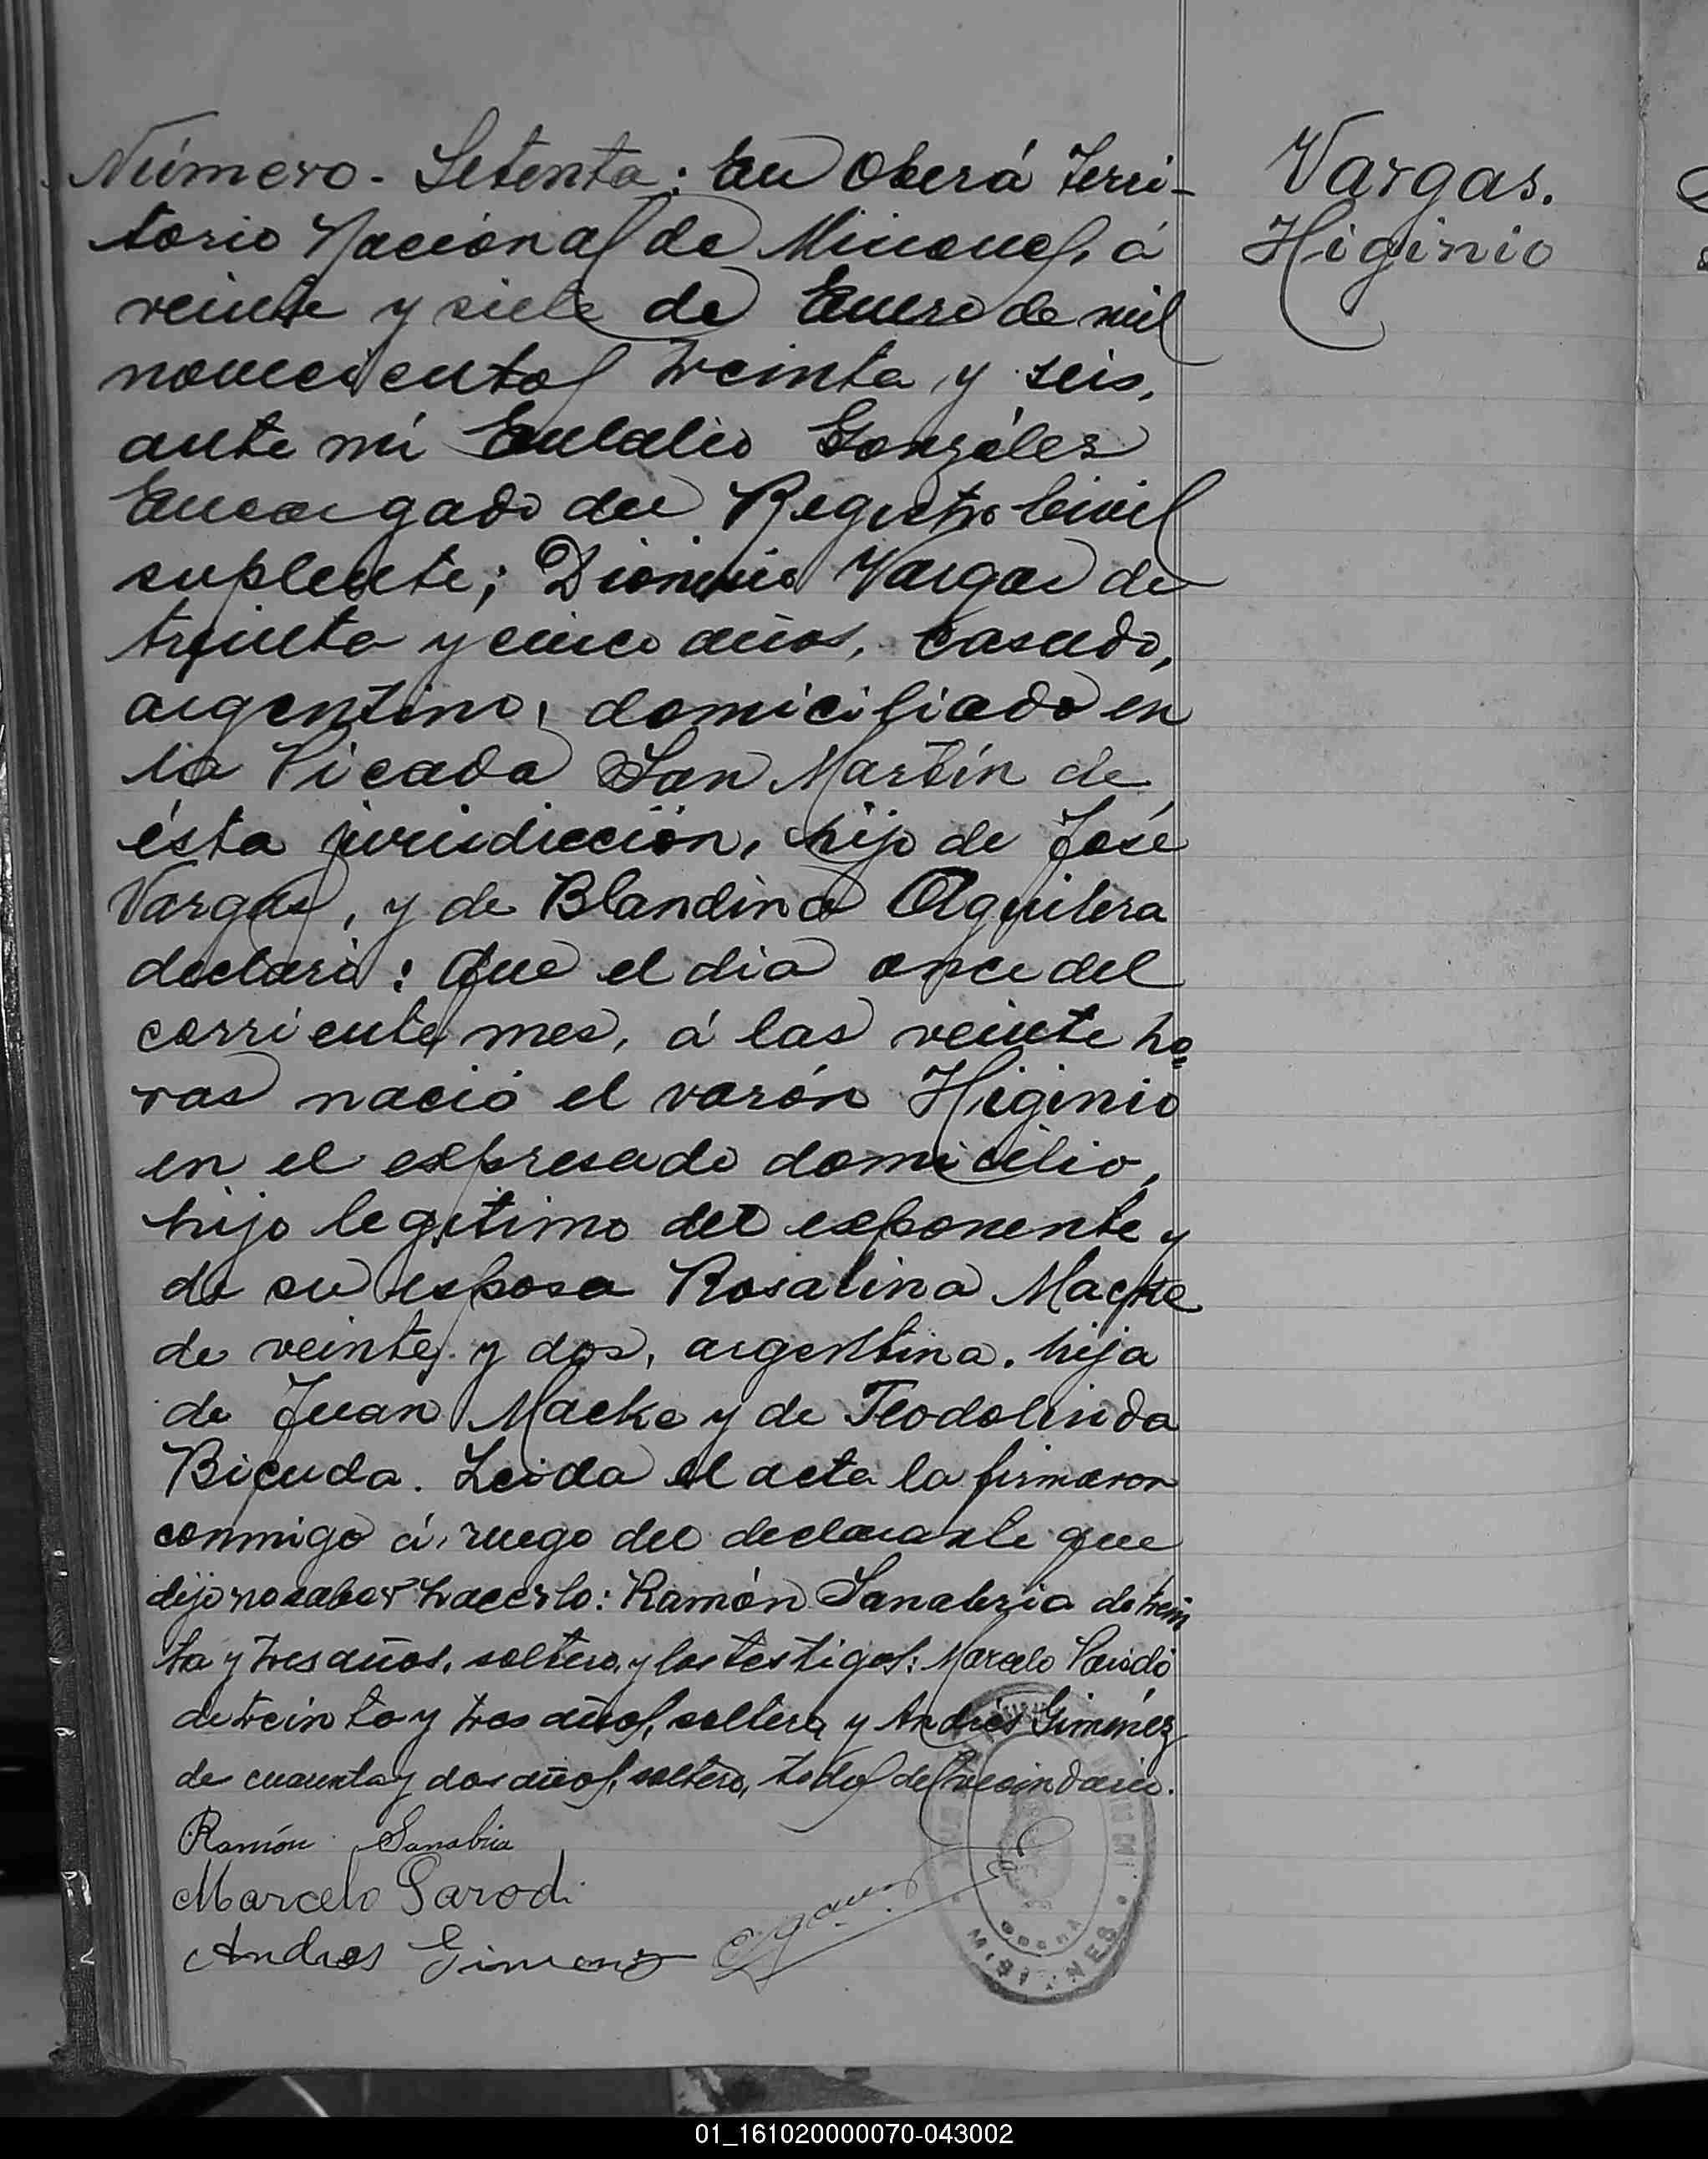 Vargas.
Higinio
Número - Setenta: En Oberá Terri-
torio Nacional de Misiones, á
veinte y siete de Enero de mil
novecientos treinta y seis,
ante mí Eulalio Gonzáles
Encargado del Registro Civil
suplente; Dionisio Vargas de
treinta y cinco años, casado,
argentino, domiciliado en
la Picada San Martín de
ésta jurisdicción, hijo de José
Vargas, y de Blandina Aguilera
declaró: Que el dia once del
corriente mes, á las veinte ho=
ras nació el varón Higinio
en el expresado domicilio,
hijo legitimo del exponente y
de su esposa Rosalina Macke
de veinte y dos, argentina, hija
de Juan Macke y de Teodolinda
Bicuda. Leida el acta la firmaron
conmigo á ruego del declarante que
dijo no saber hacerlo: Ramón Sanabria de trein
ta y tres años, soltero, y los testigos: Marcelo Parodi
de treinta y tres años, soltero, y Andrés Giménez
de cuarenta y dos años, soltero, todos del vecindario.
Ramón Sanabria
Marcelo Parodi
Andres Gimenez
MISIONES
01_161020000070-043002